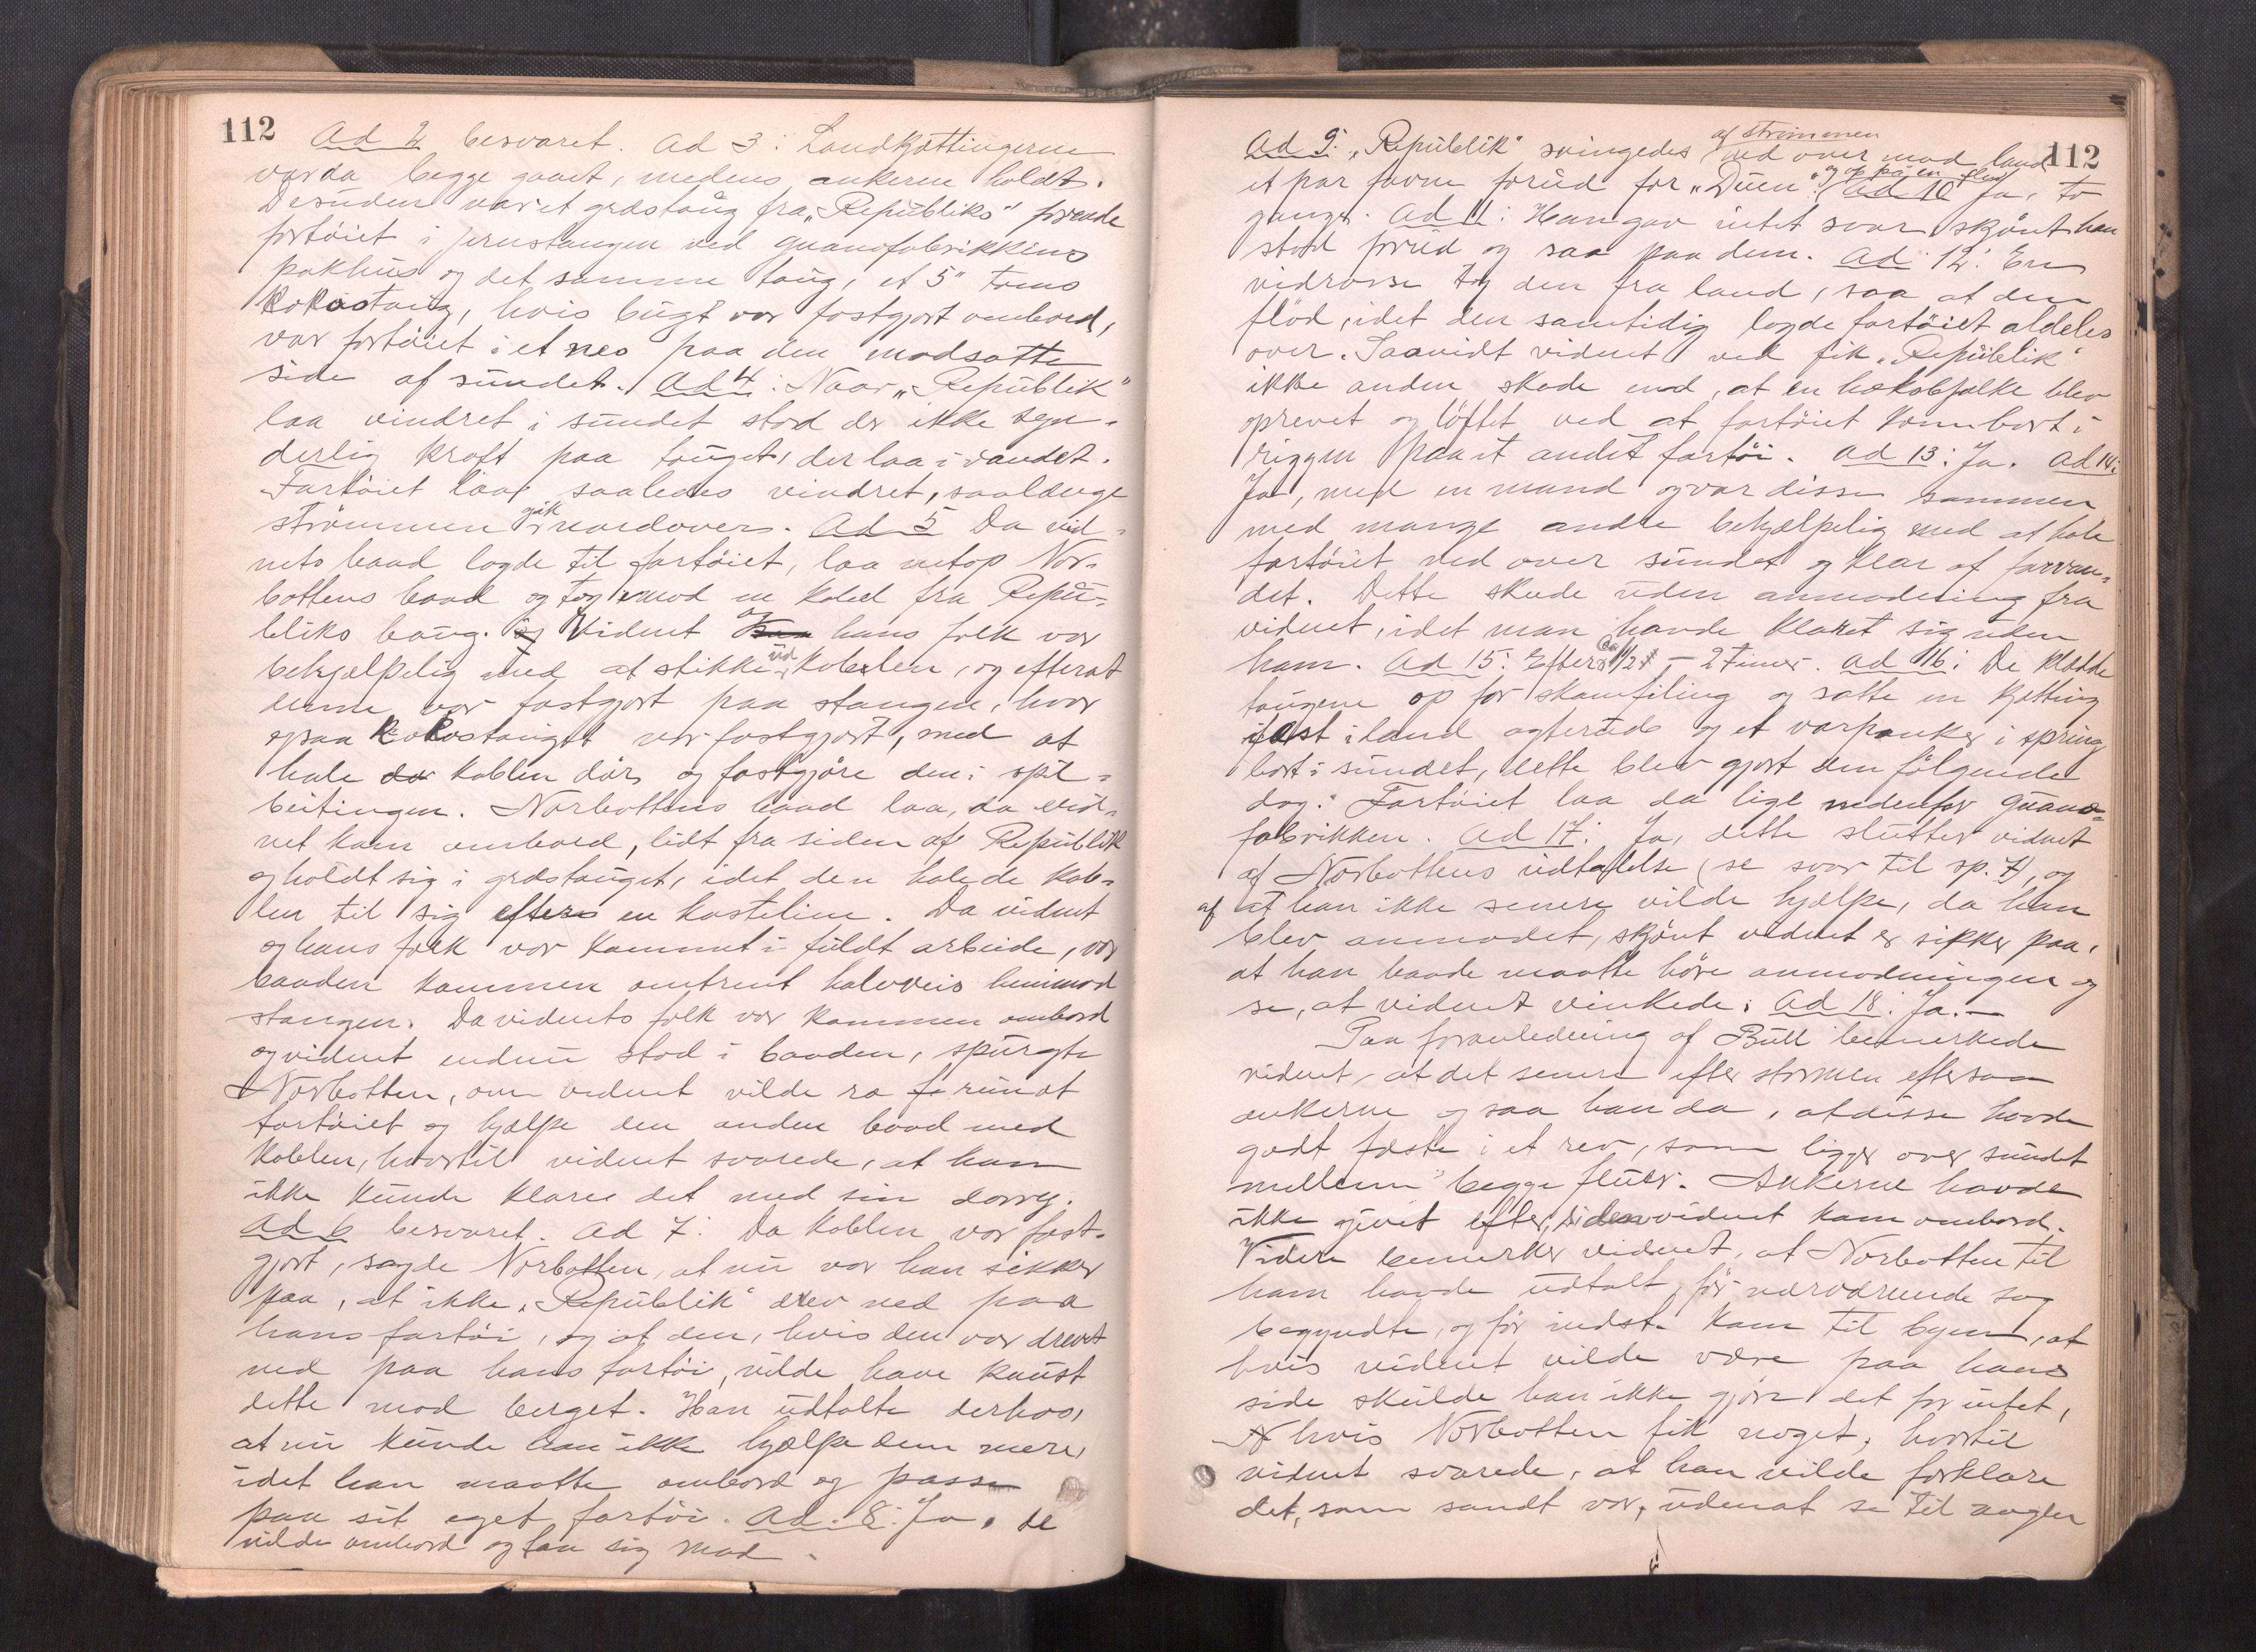 112
Ad 2 besvaret. Ad 3: Landkjættingerne
var da begge gaaet, medens ankerene holdt.
Desuden var et græstoug fra „Republiks" forende
fortöiet i jernstangen ved guanofabrikkens
pakhus og det samme toug, et 5" toms
Kokostoug, hvis bugt var fastgjort ombord,
var fortöiet i et nes paa den modsatte
side af sundet. Ad 4: Naar „Republik"
laa vindret i sundet stod der ikke syn-
derlig kraft paa touget, der laa i vandet.
Fartöiet laa saaledes vindret, saalænge
strömmen gik nordover. Ad 5 Da vid-
nets baad lagde til fartöiet, laa netop Nor-
bottens baad og tog imod en kabel fra Repu-
bliks baug. Vidnet og hans folk var
behjælpelig med at stikke ud kablen, og efterat
denne var fastgjort paa stangen, hvor
ogsaa Kokostouget var fastgjort, med at
hale kablen dör og fastgjöre den i spil-
beitingen. Norbottens baad laa, da vid-
net kom ombord, lidt fra siden af Republik
og holdt sig i græstouget, idet den halede kab-
len til sig efter en kasteline. Da vidnet
og hans folk var kommet i fuldt arbeide, var
baaden kommen omtrent halvveis henimod
stangen. Da vidnets folk var kommen ombord
og vidnet endnu stod i baaden, spurgte
Norbotten, om vidnet vilde ro rundt
fartöiet og hjælpe den anden baad med
Kablen, hvortil vidnet svarede, at han
ikke kunde klare det med sin dorry.
Ad 6 besvaret. Ad 7: Da kablen var fast-
gjort, sagde Norbotten, at nu var han sikker
paa, at ikke „Republik" drev ned paa
hans fartöi, og at den, hvis den var drevet
ned paa hans fartöi, vilde have knust
dette mod berget. Han udtalte derhos,
at nu kunde han ikke hjælpe dem mere,
idet han maatte ombord og passe
paa sit eget fartöi. Ad. 8: Ja, de
vilde ombord og faa sig mad.
112
af strömmen
Ad 9: „Republik" svingedes ned over mod land
og op på en flu
et par favne forud for „Duen". Ad 10 Ja, to
gange. Ad 11: Han gav intet svar skjönt han
stod forud og saa paa dem. Ad 12: En
vindrosse tog den fra land, saa at den
flöd, idet den samtidig lagde fartöiet aldeles
over. Saavidt vidnet ved fik „Republik"
ikke anden skade end, at en hæksbjælke blev
oprevet og löftet ved at fartöiet kom bort i
riggen paa et andet fartöi. Ad 13: Ja. Ad 14:
Ja, med en mand og var disse sammen
med mange andre behjælpelig med at hale
fartöiet ned over sundet og klar af farvan-
det. Dette skede uden anmodning fra
vidnet, idet man havde klaret sig uden
ham. Ad 15: Efter ca 1 1/2 - 2 timer. Ad 16: De klædde
tougene op for skamfiling og satte en kjetting
fast i land agterud og et varpanker i spring
bort i sundet, dette blev gjort den fölgende
dag. Fartöiet laa da lige nedenfor guano-
fabrikken. Ad 17: Ja, dette slutter vidnet
af Norbottens udtalelse (se svar til sp. 7), og
af at han ikke senere vilde hjælpe, da han
blev anmodet, skjönt vidnet er sikker paa,
at han baade maatte höre anmodningen og
se, at vidnet vinkede. Ad 18: Ja. —
Paa foranledning af Bull bemerkede
vidnet, at det senere efter stormen eftersaa
ankerne og saa han da, at disse havde
godt fæste i et rev, som ligger over sundet
mellem begge fluer. Ankerne havde
ikke givet efter, siden vidnet kom ombord.
Videre bemerker vidnet, at Norbotten til
ham havde udtalt, för nærværende sag
begyndte, og för indst. kom til byen, at
hvis vidnet vilde være paa hans
side skulde han ikke gjöre det for intet,
hvis Norbotten fik noget, hvortil
vidnet svarede, at han vilde forklare
det, som sandt var, uden at se til nogen